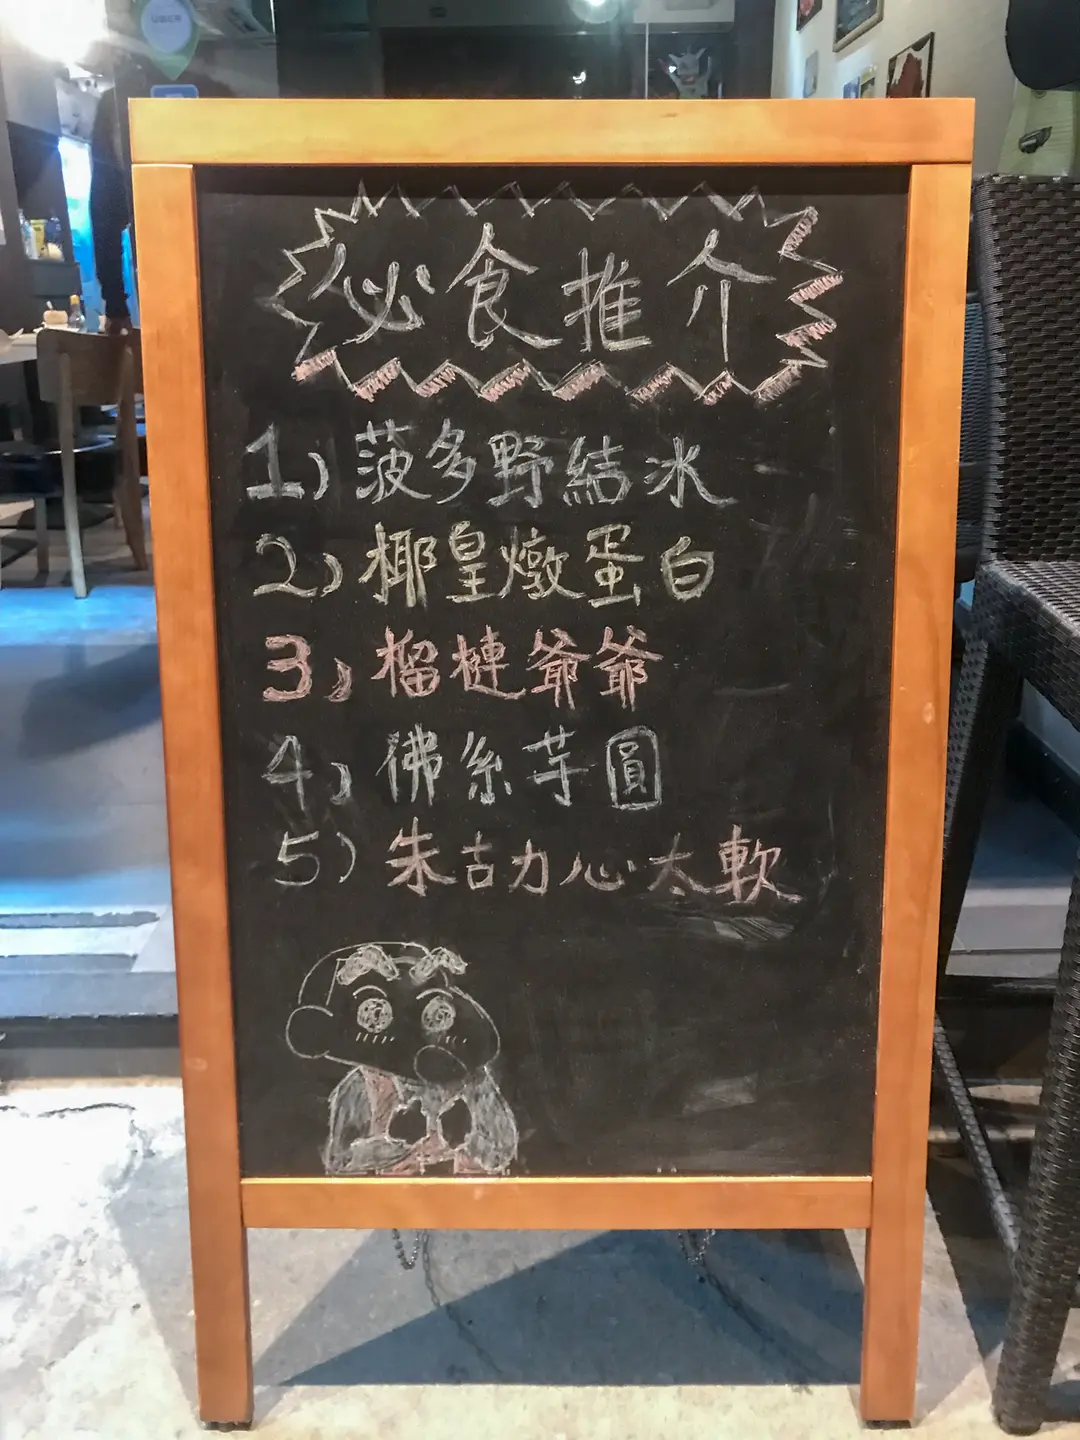 必食推介
1) 菠多野結冰
2) 椰皇燉蛋白
3) 榴槤爺爺
4) 佛系芋圓
5) 朱古力心太軟